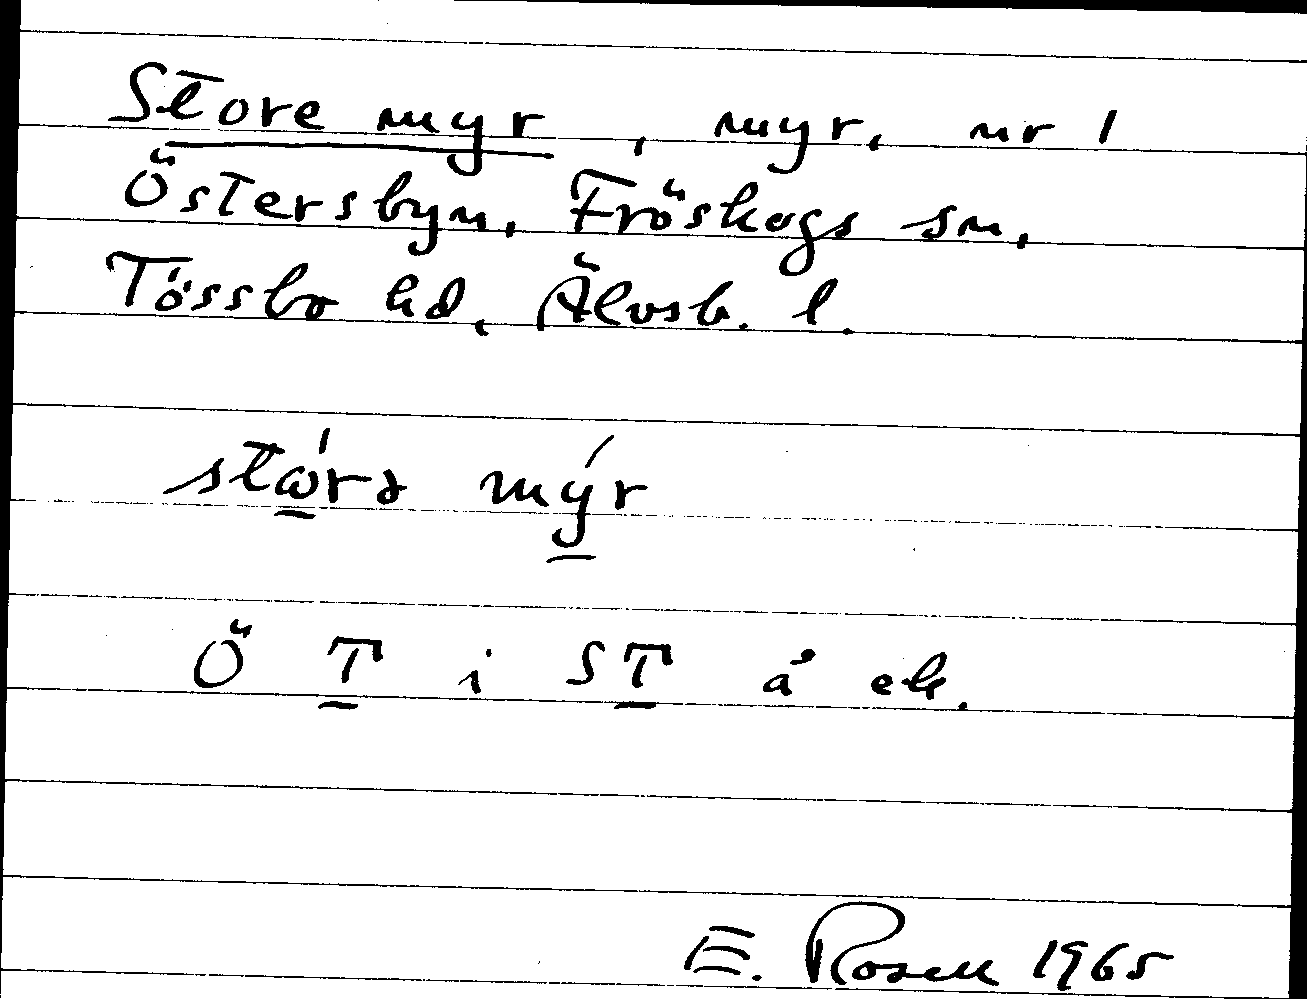 Store myr, myr, nr 1
Östersbyn, Fröskogs sn,
Tössbo hd, Älvsb. l.
stώ̱rə mý̱r
Ö T̲ i ST̲ å ek.
E. Rosell 1965